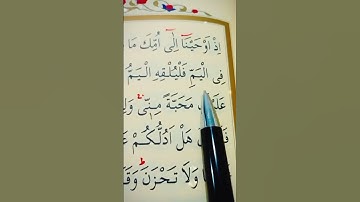 اِذْ اَوْحَيْنَآ اِلٰٓى اُمِّكَ مَا
فِى الْيَمِّ فَلْيُلْقِهِ الْيَمُّ
مَحَبَّةً مِنّٖى
هَلْ اَدُلُّكُمْ
وَلَا تَحْزَنَ